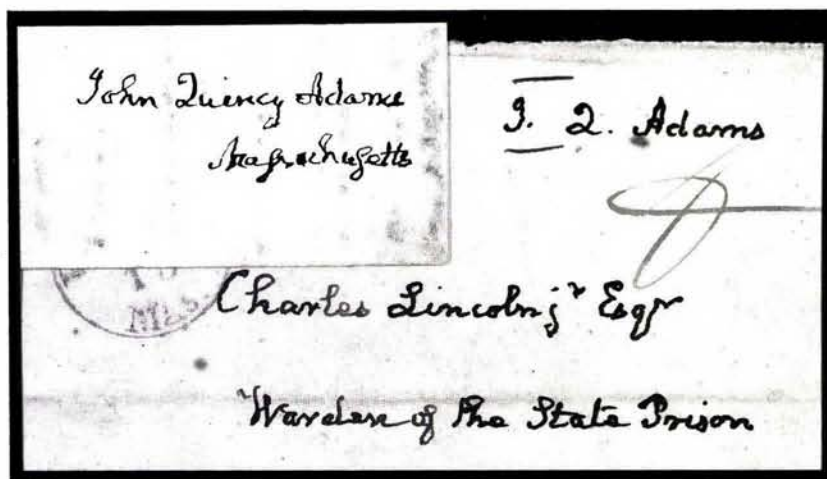 John Quincy Adams
Massachusetts
J. Q. Adams
MAS.
Charles Lincoln jr Esqr
Warden of the State Prison